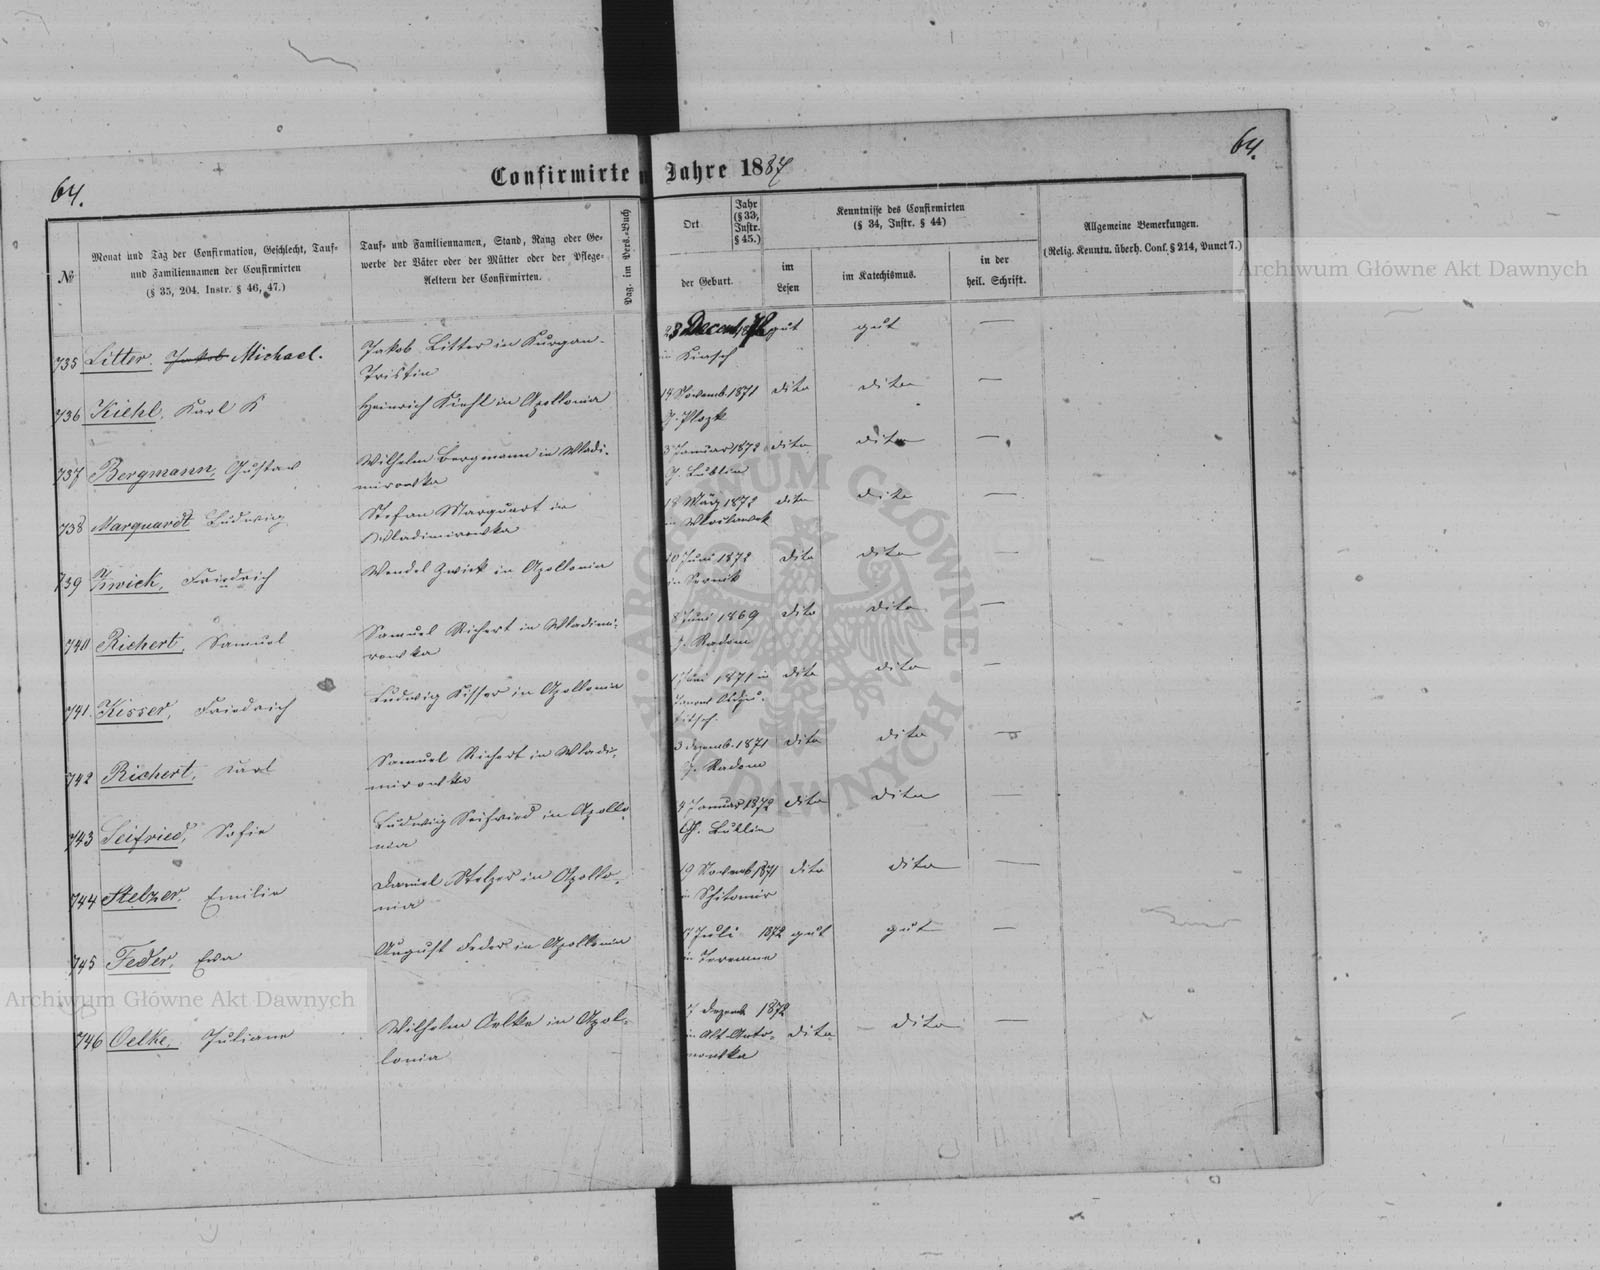 64.
64.
Confirmirte
Jahre 1887
№
Monat und Tag der Confirmation, Geschlecht, Tauf-
und Familiennamen der Confirmirten
(§ 35, 204. Instr. § 46, 47.)
Tauf- und Familiennamen, Stand, Rang oder Ge-
werbe der Väter oder der Mütter oder der Pflege-
Aeltern der Confirmirten.
Pag. im Pers.-Buch
Ort
Jahr
(§ 33,
Instr.
§ 45.)
der Geburt.
Kenntnisse des Confirmirten
(§ 34, Instr. § 44)
im
Lesen
im Katechismus.
in der
heil. Schrift.
Allgemeine Bemerkungen.
(Relig. Kenntn. überh. Conf. § 214, Punct 7.)
735 Litter. Jakob Michael.
Jakob Litter in Kurgan-
Tristin
gut
gut —
in Kirsch
736 Kiehl, Karl K
Heinrich Kiehl in Apollonia
14 Novemb. 1871 dito dito —
G. Plozk
737 Bergmann, Gustav
Wilhelm Bergmann in Wladi-
mirowka
3 Januar 1872 dito dito —
G. Lublin
738 Marquardt Ludwig
Stefan Marquart in
Wladimirowka
18 März 1872 dito dito —
in Wloclawek
739 Zwick, Friedrich
Wendel Zwick in Apollonia
10 Juni 1872 dito dito —
in Sernik
740 Richert, Samuel
Samuel Richert in Wladimi-
rowka
8 Juni 1869 dito dito —
G. Radom
741. Kisser, Friedrich
Ludwig Kisser in Apollonia
1871 in dito dito —
742 Richert, Karl
Samuel Richert in Wladi-
mirowka
3 dezemb. 1871 dito dito —
G. Radom
743 Seifried, Sofie
Ludwig Seifried in Apollo-
nia
4 Januar 1872 dito dito —
G. Lublin
744 Stelzer, Emilie
Daniel Stelzer in Apollo-
nia
19 Novemb 1871 dito dito —
in Schitomir
745 Feder, Eva
August Feder in Apollonia
17 Juli 1872 gut gut —
in Teremne
746 Oelke, Juliane
Wilhelm Oelke in Apol-
lonia
7 dezemb 1872
in Alt Anto- dito dito —
nowka
Archiwum Główne Akt Dawnych
Archiwum Główne Akt Dawnych
ARCHIWUM GŁÓWNE AKT DAWNYCH